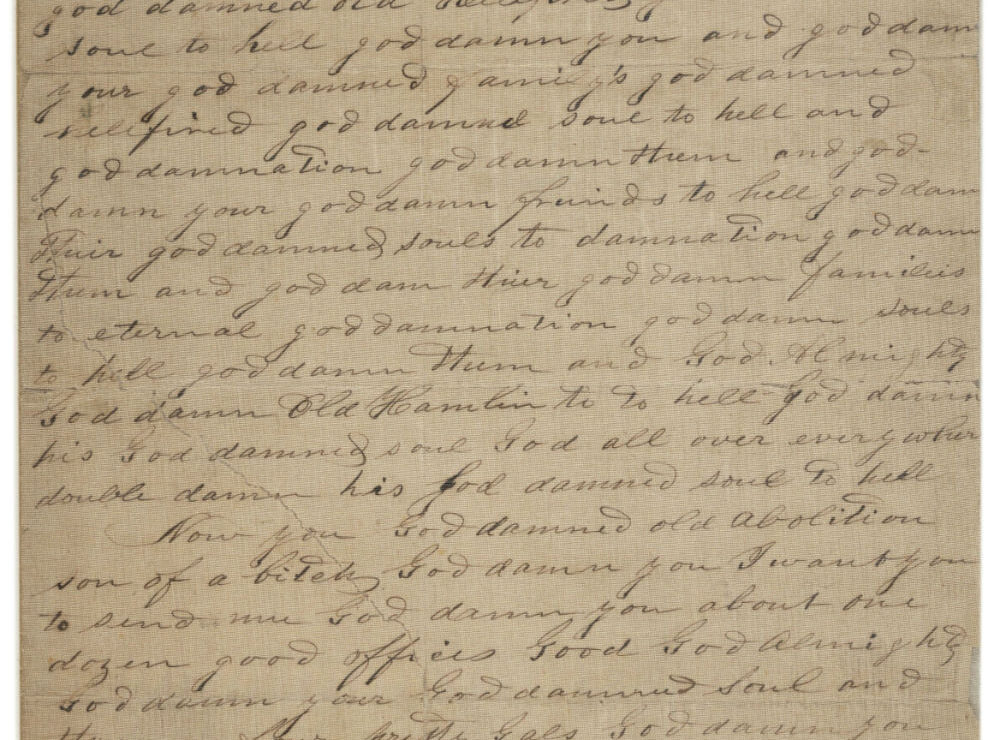 god damned old hellfired
soul to hell god damn you and god dam
your god damned family's god damned
hellfired god damned soul to hell and
god damnation god damn them and god-
damn your god damn friends to hell god dam
their god damned souls to damnation god damn
them and god dam thier god damn families
to eternal god damnation god damn souls
to hell god damn them and God Almighty
God damn Old Hamlin to to hell God damn
his God damned soul God all over everywher
double damn his God damned soul to hell
Now you God damned old Abolition
son of a bitch God damn you I want you
to send me God damn you about one
dozen good offices Good God Almighty
God damn your God damned soul and
pretty Gals God damn you